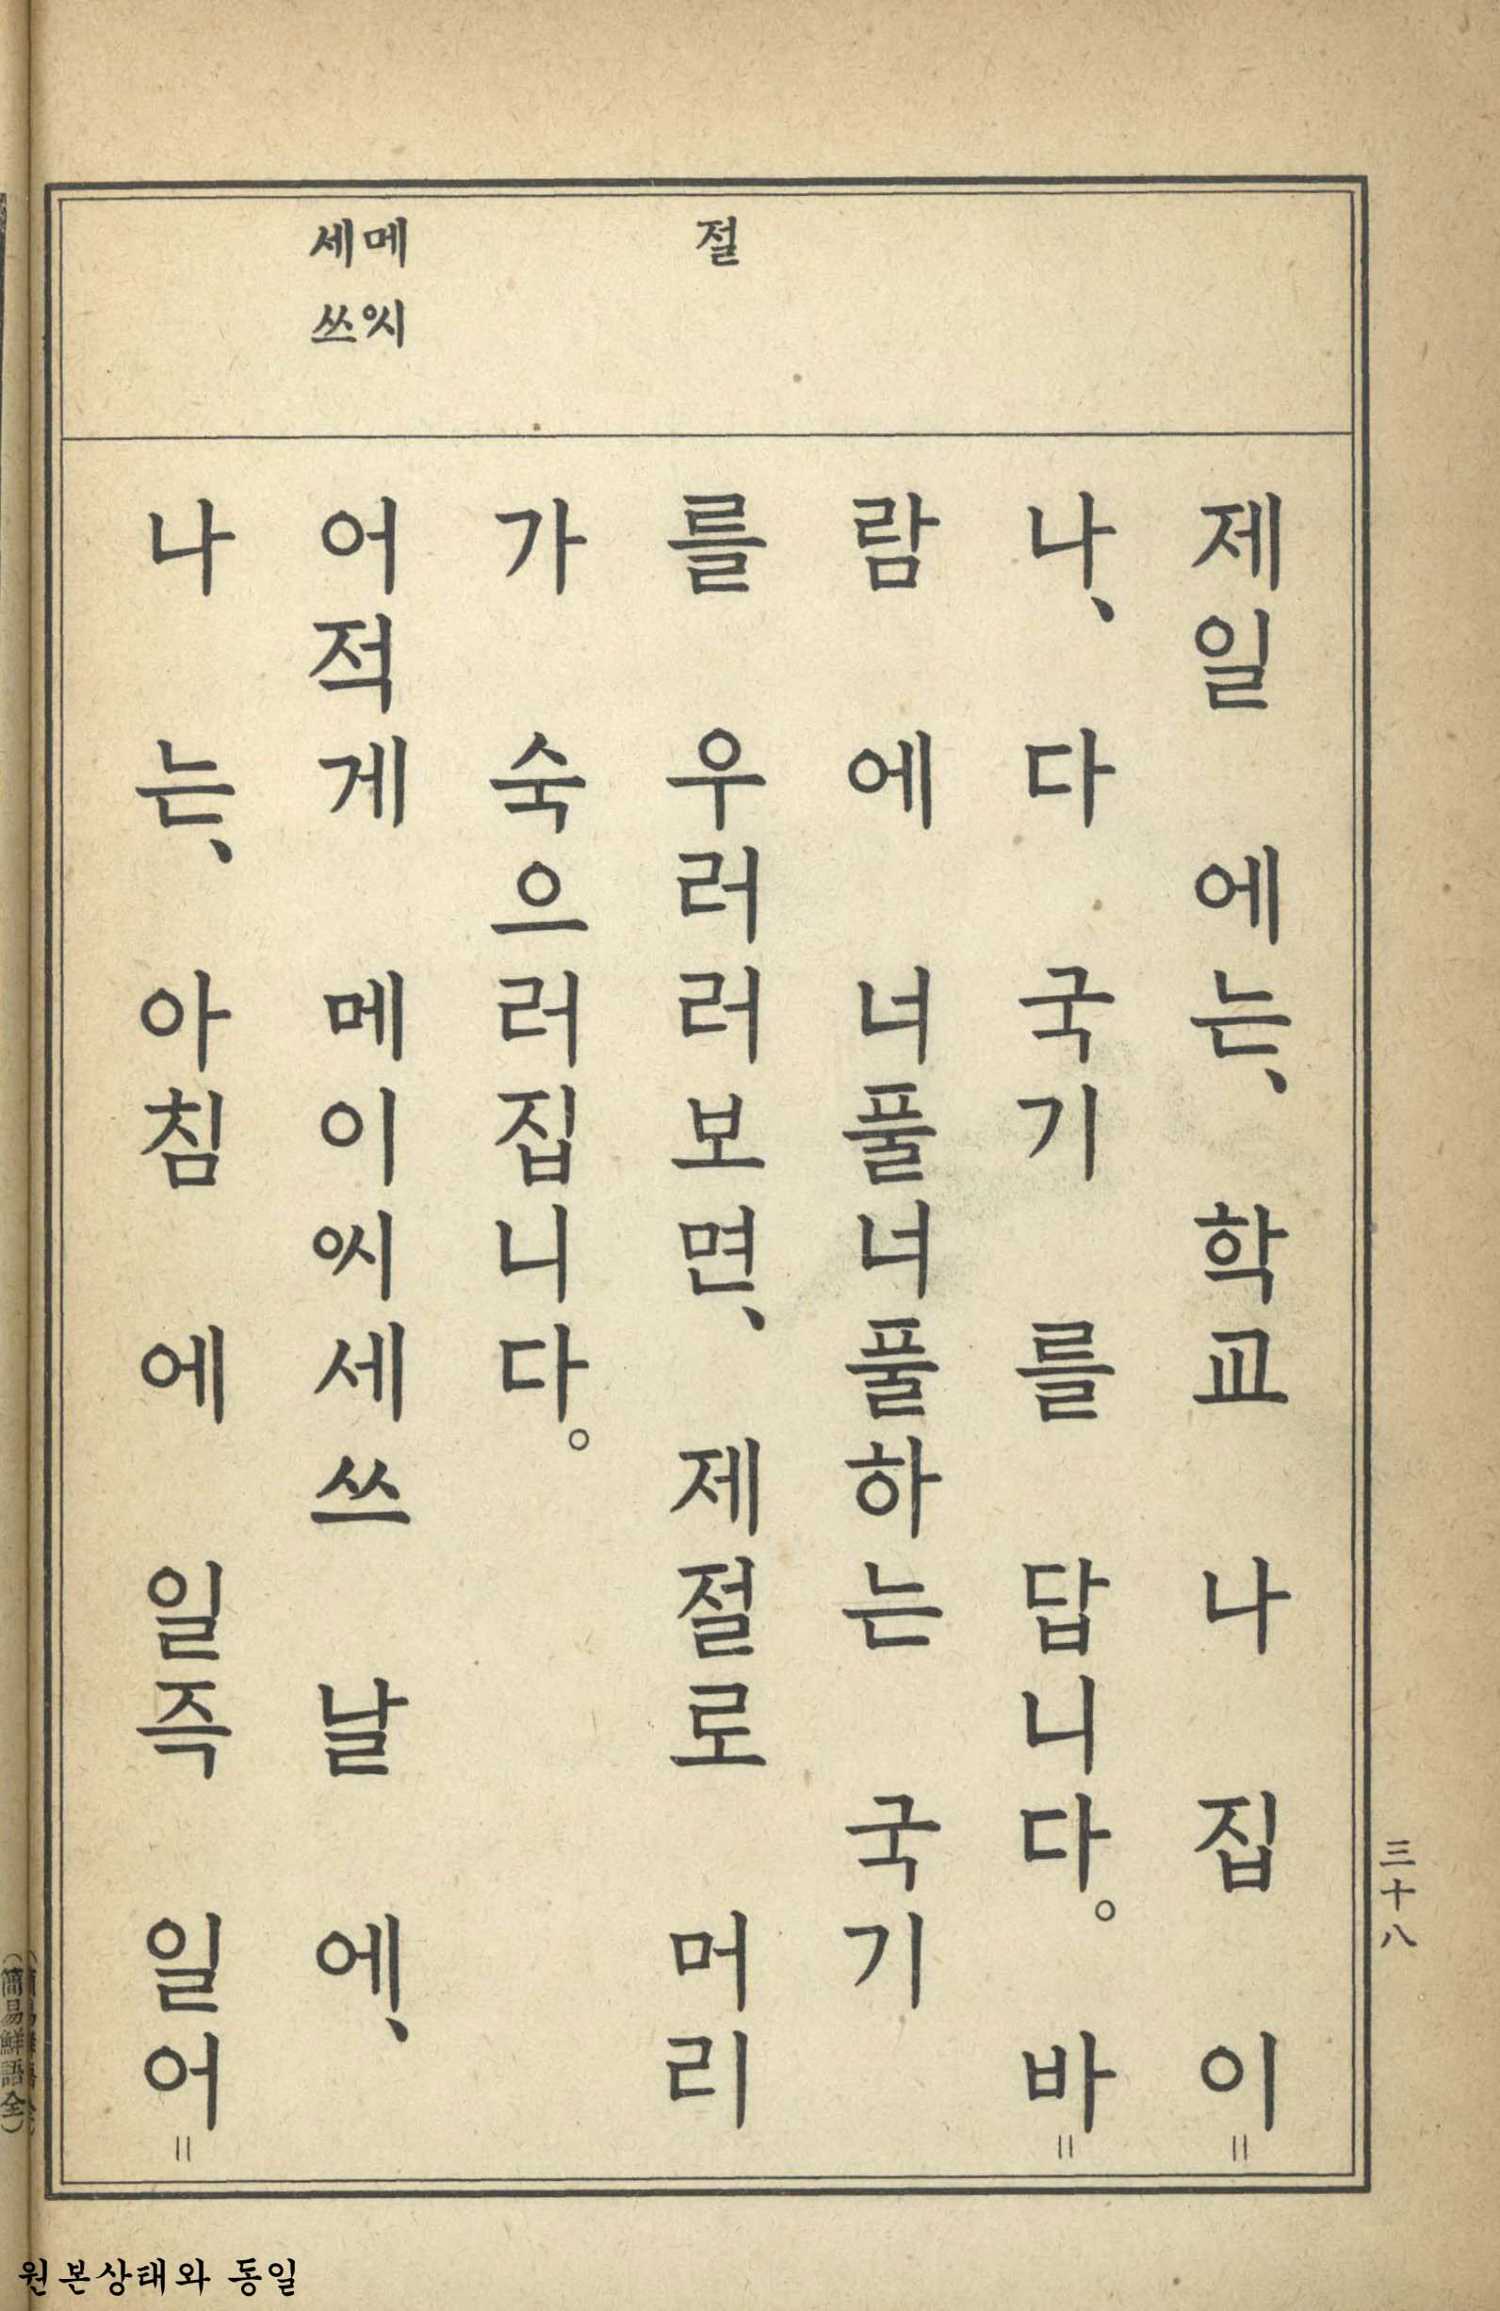 절
메ᅅᅵ
세쓰
제일 에는、 학교 나 집 이=
나、 다 국기 를 답니다。 바=
람 에 녀풀녀풀하는 국기
를 우러러보면、 제절로 머리
가 숙으러집니다。
어적게 메이ᅅᅵ세쓰 날 에、
나는、 아침 에 일즉 일어=
三十八
(簡易鮮語全)
원본상태와 동일